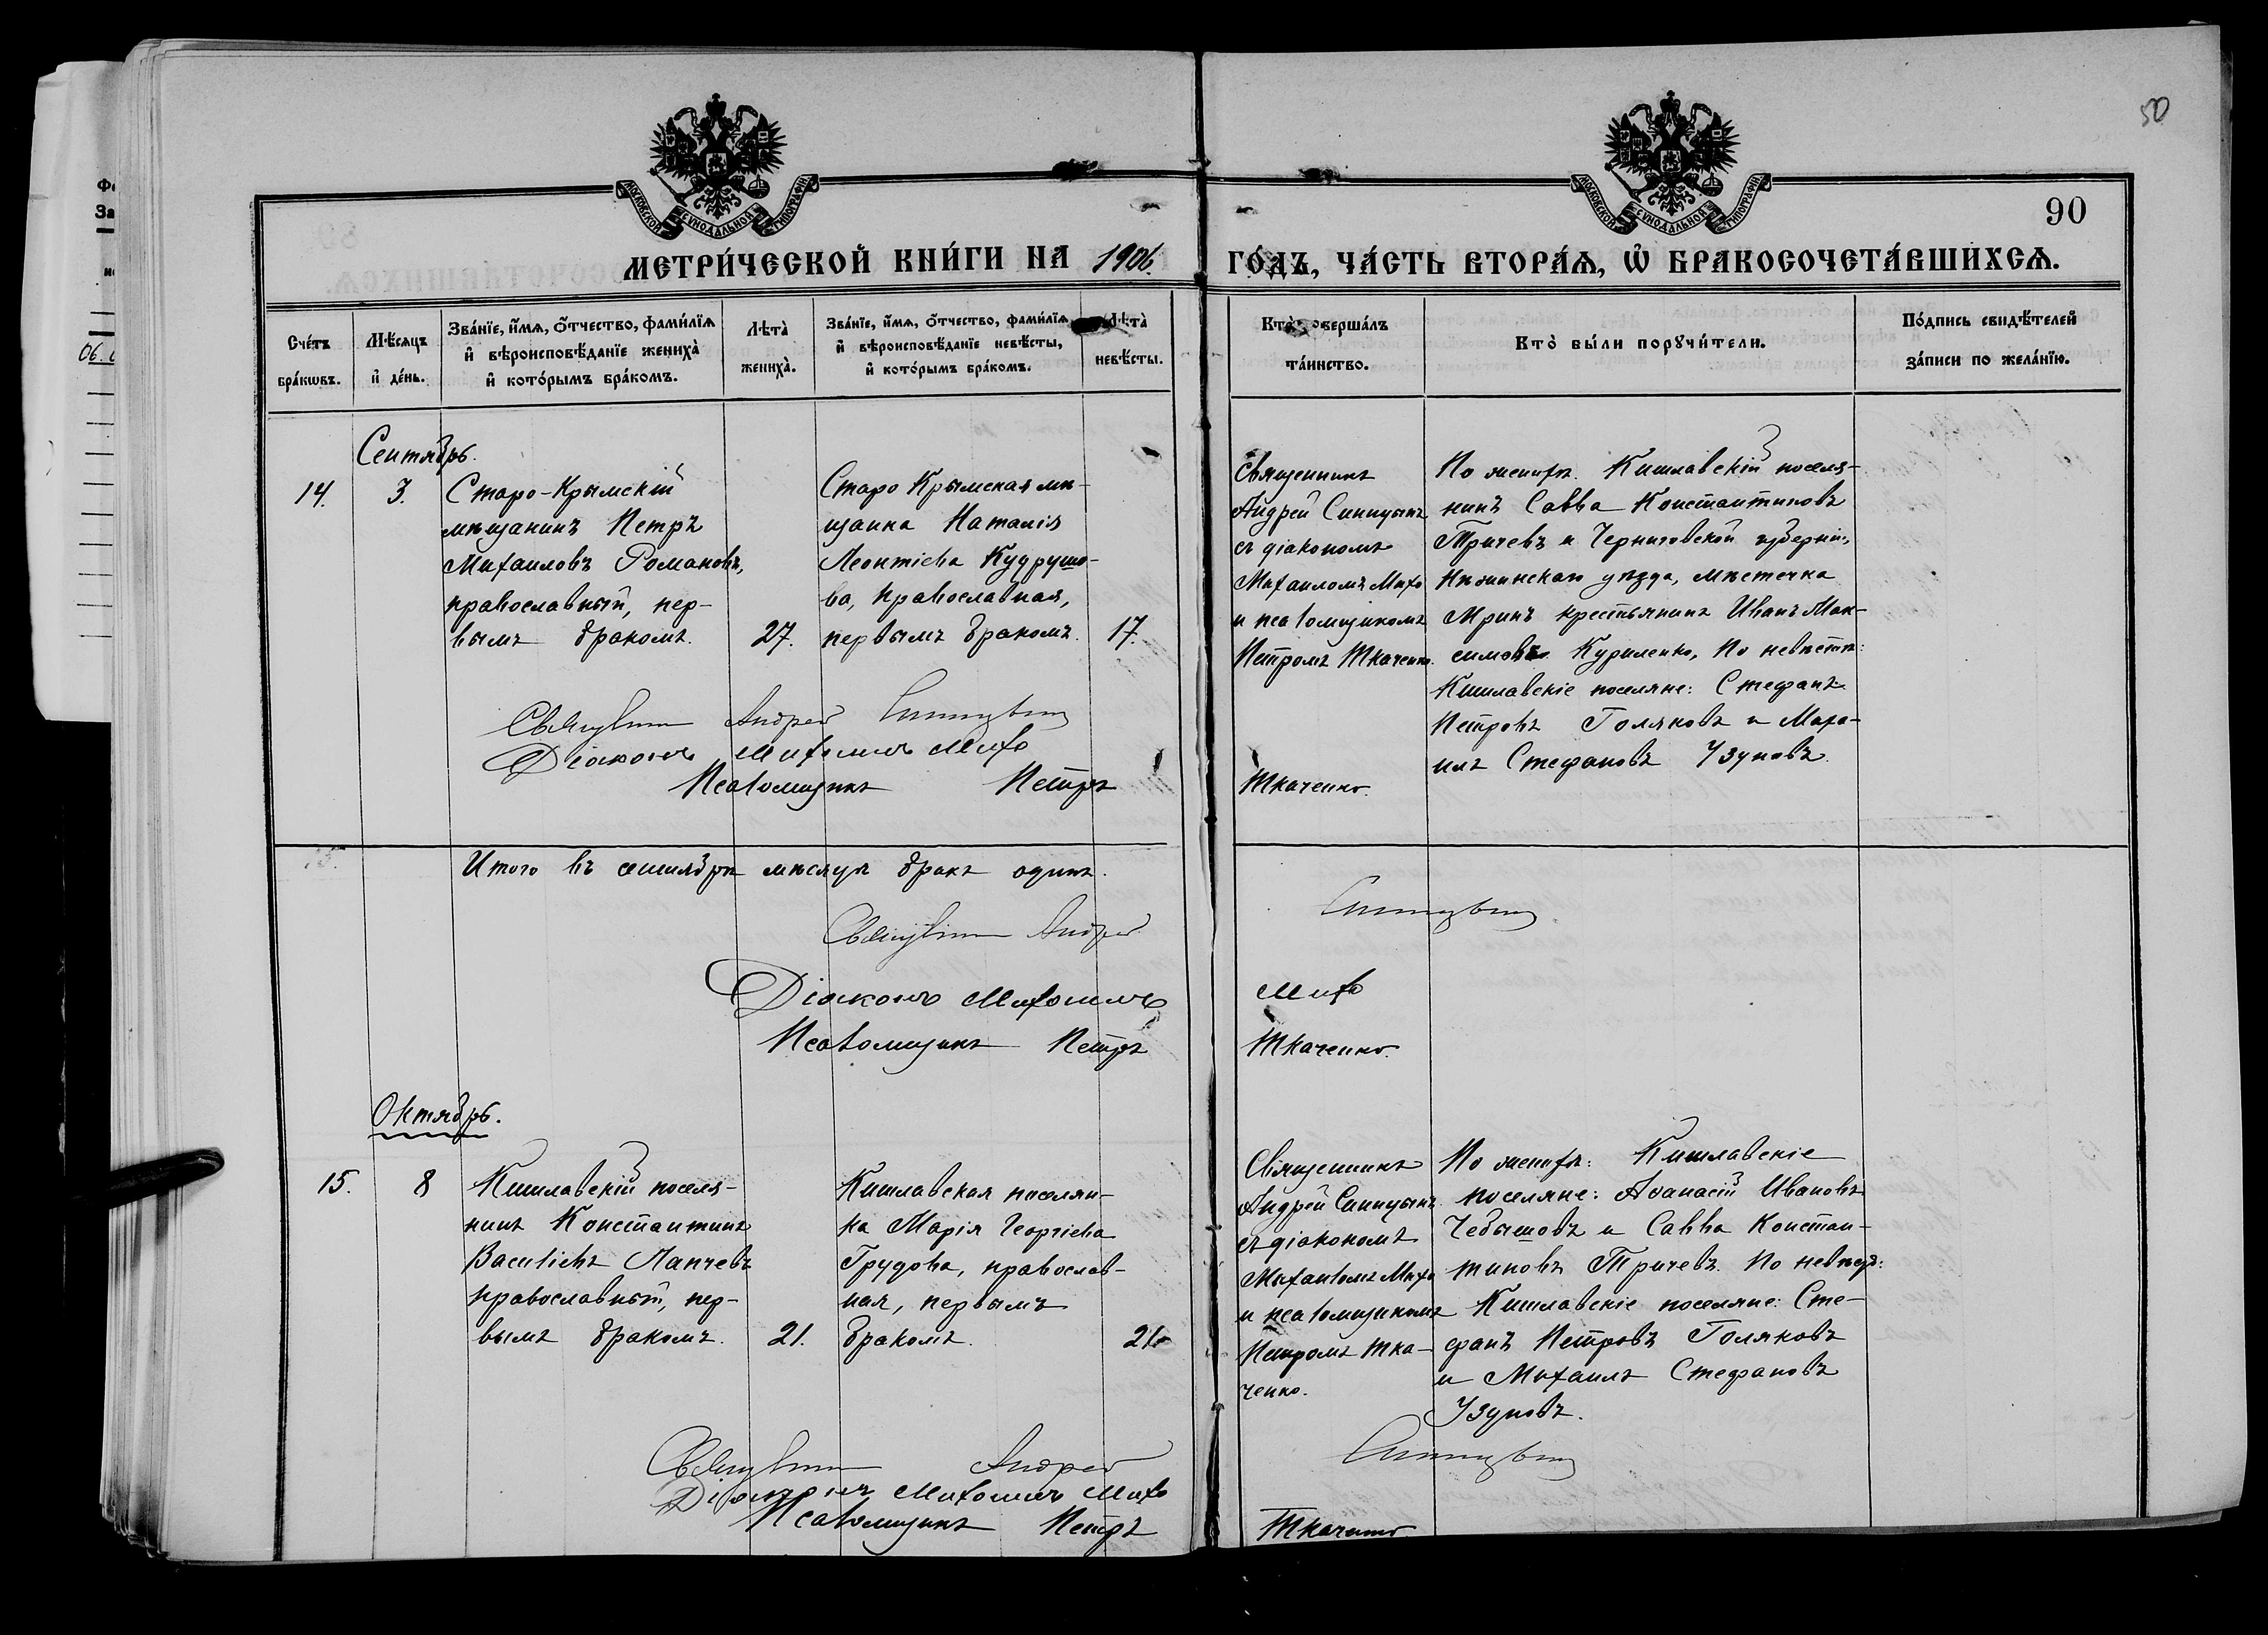 50
90
МОСКОВСКОЙ СѴНОДАЛЬНОЙ ТИПОГРАФІИ
МОСКОВСКОЙ СѴНОДАЛЬНОЙ ТИПОГРАФІИ
МЕТРИ́ЧЕСКОЙ КНИ́ГИ НА 1906.
ГО́ДЪ, ЧА́СТЬ ВТОРА́Ѧ, Ѡ҆ БРАКОСОЧЕТА́ВШИХСѦ.
Сче́тъ
бра́кѡвъ.
Мѣ́сѧцъ
и҆ де́нь.
Зва́нїе, и҆́мѧ, ѻ҆́тчество, фами́лїѧ
и҆ вѣроисповѣ́данїе жениха̀
и҆ кото́рымъ бра́комъ.
Лѣта̀
жениха̀.
Зва́нїе, и҆́мѧ, ѻ҆́тчество, фами́лїѧ
и҆ вѣроисповѣ́данїе невѣ́сты,
и҆ кото́рымъ бра́комъ.
Лѣта̀
невѣ́сты.
Кто̀ соверша́лъ
та́инство.
Кто̀ бы́ли порꙋчи́тели.
По́дпись свидѣ́телей
за́писи по жела́нїю.
Сентябрь.
14.
3.
Старо-Крымскій
мѣщанинъ Петръ
Михаиловъ Романовъ,
православный, пер-
вымъ бракомъ.
27.
Старо Крымская мѣ-
щанка Наталія
Леонтіева Кудрушо-
ва, православная,
первымъ бракомъ.
17.
Священникъ
Андрей Синицынъ
съ діакономъ
Михаиломъ Михо
и псаломщикомъ
Петромъ Ткаченко.
По женихѣ. Кишлавскій поселя-
нинъ Савва Константиновъ
Тричевъ и Черниговской губерніи,
Нѣжинскаго уѣзда, мѣстечка
Мринъ крестьянинъ Иванъ Мак-
симовъ Куриленко, По невѣстѣ:
Кишлавскіе поселяне: Стефанъ
Петровъ Голяковъ и Миха-
илъ Стефановъ Узуновъ.
Священникъ Андрей Синицынъ
Діаконъ Михаилъ Михо
Псаломщикъ Петръ Ткаченко.
Итого въ сентябрѣ мѣсяцѣ бракъ одинъ.
Священникъ Андрей Синицынъ
Діаконъ Михаилъ Михо
Псаломщикъ Петръ Ткаченко.
Октябрь.
15.
8
Кишлавскій поселя-
нинъ Константинъ
Василіевъ Лапчевъ
православный, пер-
вымъ бракомъ.
21.
Кишлавская поселян-
ка Марія Георгіева
Грудова, православ-
ная, первымъ
бракомъ.
21.
Священникъ
Андрей Синицынъ
съ діакономъ
Михаиломъ Михо
и псаломщикомъ
Петромъ Тка-
ченко.
По женихѣ: Кишлавскіе
поселяне: Аѳанасій Ивановъ
Чебышовъ и Савва Констан-
тиновъ Тричевъ. По невѣстѣ:
Кишлавскіе поселяне: Сте-
фанъ Петровъ Голяковъ
и Михаилъ Стефановъ
Узуновъ.
Священникъ Андрей Синицынъ
Діаконъ Михаилъ Михо
Псаломщикъ Петръ Ткаченко